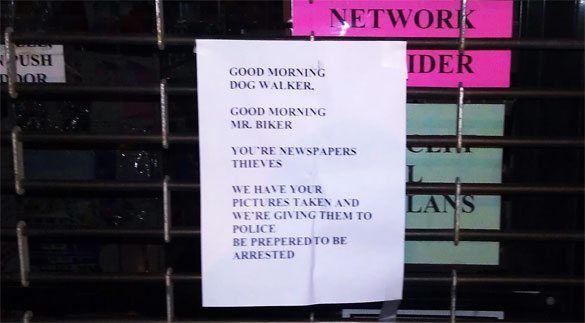 NETWORK
IDER
PUSH
DOOR
GOOD MORNING
DOG WALKER.
GOOD MORNING
MR. BIKER
YOU'RE NEWSPAPERS
THIEVES
WE HAVE YOUR
PICTURES TAKEN AND
WE'RE GIVING THEM TO
POLICE
BE PREPERED TO BE
ARRESTED
L
LANS